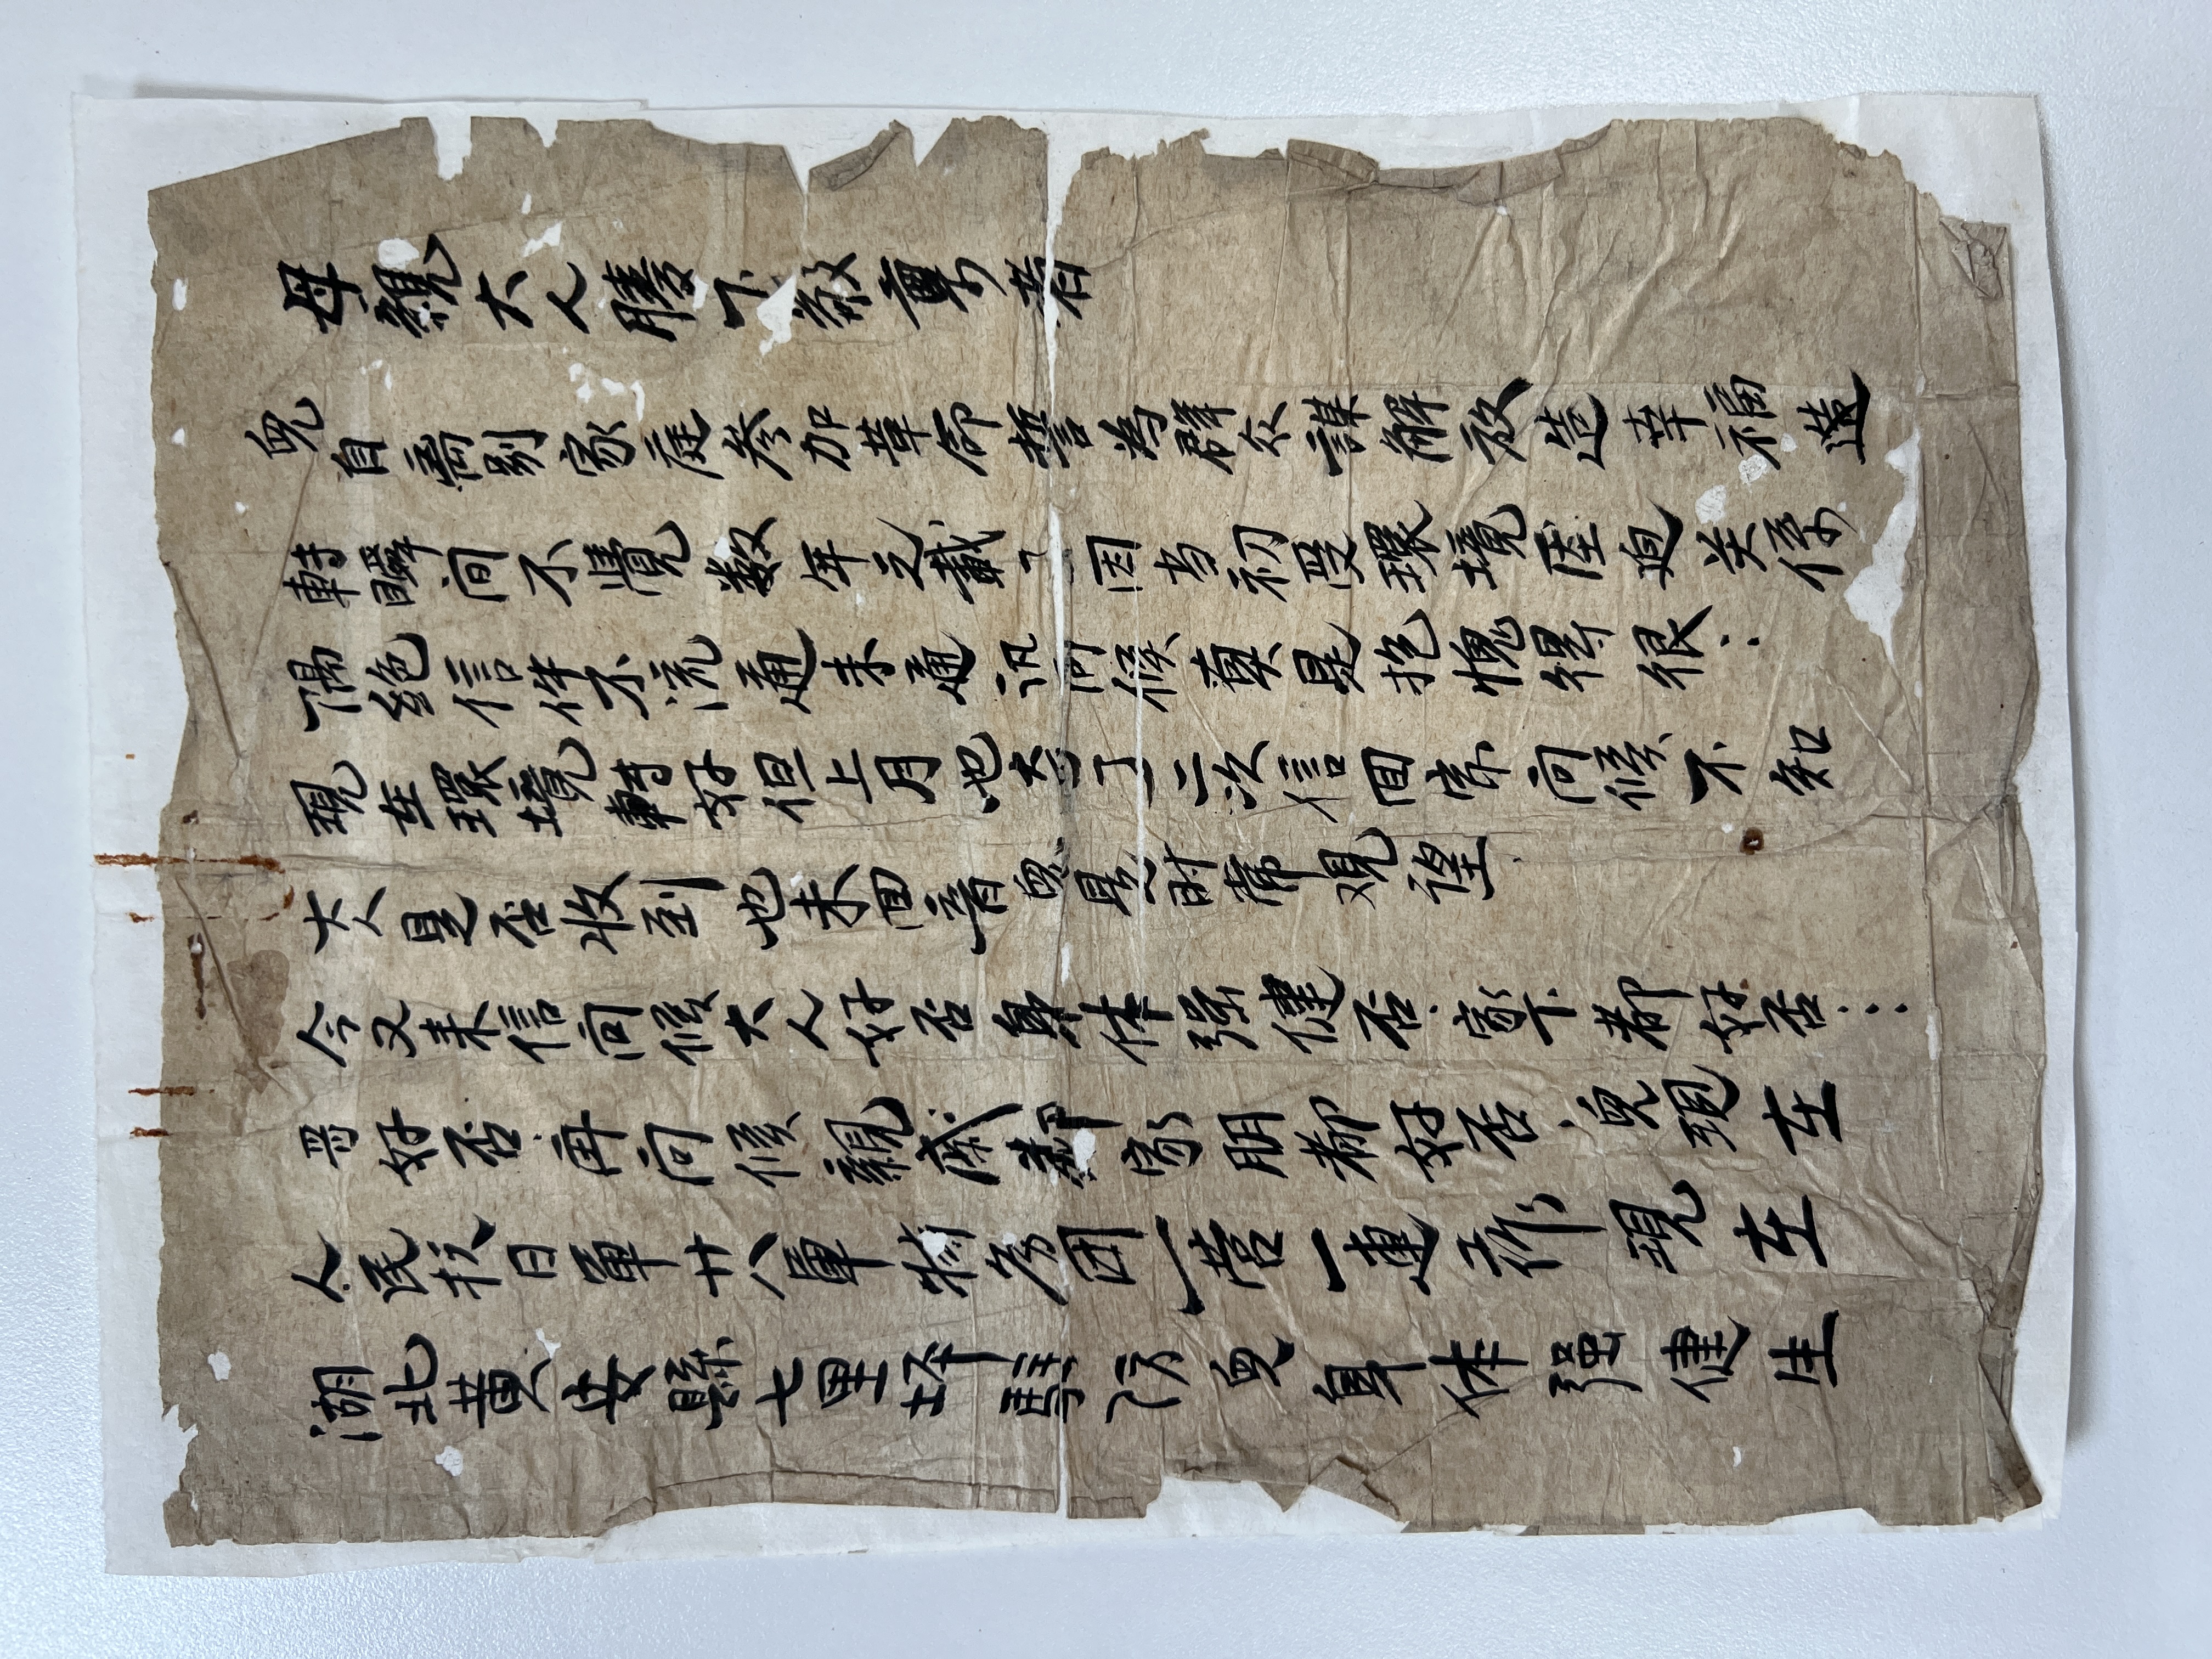 母親大人膝下敬禀者
兒自离別家庭参加革命誓為群众謀解放造幸福遠
轉瞬间不覺数年之載了因当初受環境压迫关係
隔絶信件不流通未通訊问候真是抱愧得很..
現在環境轉好但上月也去了二次信回家问候不知
大人是否收到也未回音兒是时常观望
今又来信问候大人好否身体强健否.家下都好否...
哥好否.再问候親戚鄰家朋都好否.兒現在
人民抗日軍廿八軍特务团一营一連工作現在
湖北黄安縣七里坪駐防兒身体强健生